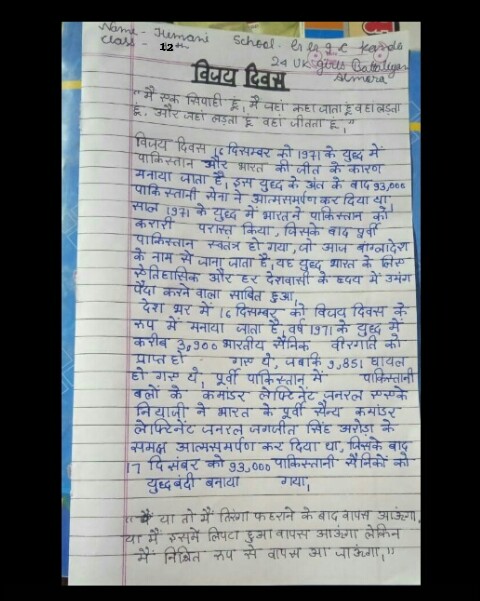 Name - Hemani School - G G I C Kanda
Class - 12th 24 UK Girls Battalion
Almora
विजय दिवस
"मैं एक सिपाही हूं, मैं जहां कहा जाता हूं वहां लड़ता
हूं. और जहां लड़ता हूं वहां जीतता हूं,"
विजय दिवस 16 दिसम्बर को 1971 के युद्ध में
पाकिस्तान और भारत की जीत के कारण
मनाया जाता है, इस युद्ध के अंत के बाद 93,000
पाकिस्तानी सेना ने आत्मसमर्पण कर दिया था,
साल 1971 के युद्ध में भारत ने पाकिस्तान को
करारी परास्त किया, जिसके बाद पूर्वी
पाकिस्तान स्वतंत्र हो गया, जो आज बांग्लादेश
के नाम से जाना जाता है, यह युद्ध भारत के लिए
ऐतिहासिक और हर देशवासी के हृदय में उमंग
पैदा करने वाला साबित हुआ
देश भर में 16 दिसम्बर को विजय दिवस के
रूप में मनाया जाता है, वर्ष 1971 के युद्ध में
करीब 3,900 भारतीय सैनिक वीरगति को
प्राप्त हो गए थे, जबकि 9,851 घायल
हो गए थे, पूर्वी पाकिस्तान में पाकिस्तानी
बलों के कमांडर लेफ्टिनेंट जनरल एएके
नियाजी ने भारत के पूर्वी सैन्य कमांडर
लेफ्टिनेंट जनरल जगजीत सिंह अरोड़ा के
समक्ष आत्मसमर्पण कर दिया था, जिसके बाद
17 दिसंबर को 93,000 पाकिस्तानी सैनिकों को
युद्धबंदी बनाया गया,
"मैं या तो मैं तिरंगा फहराने के बाद वापस आऊंगा,
या मैं इसमें लिपटा हुआ वापस आऊंगा लेकिन
मैं निश्चित रूप से वापस आ जाऊंगा,"